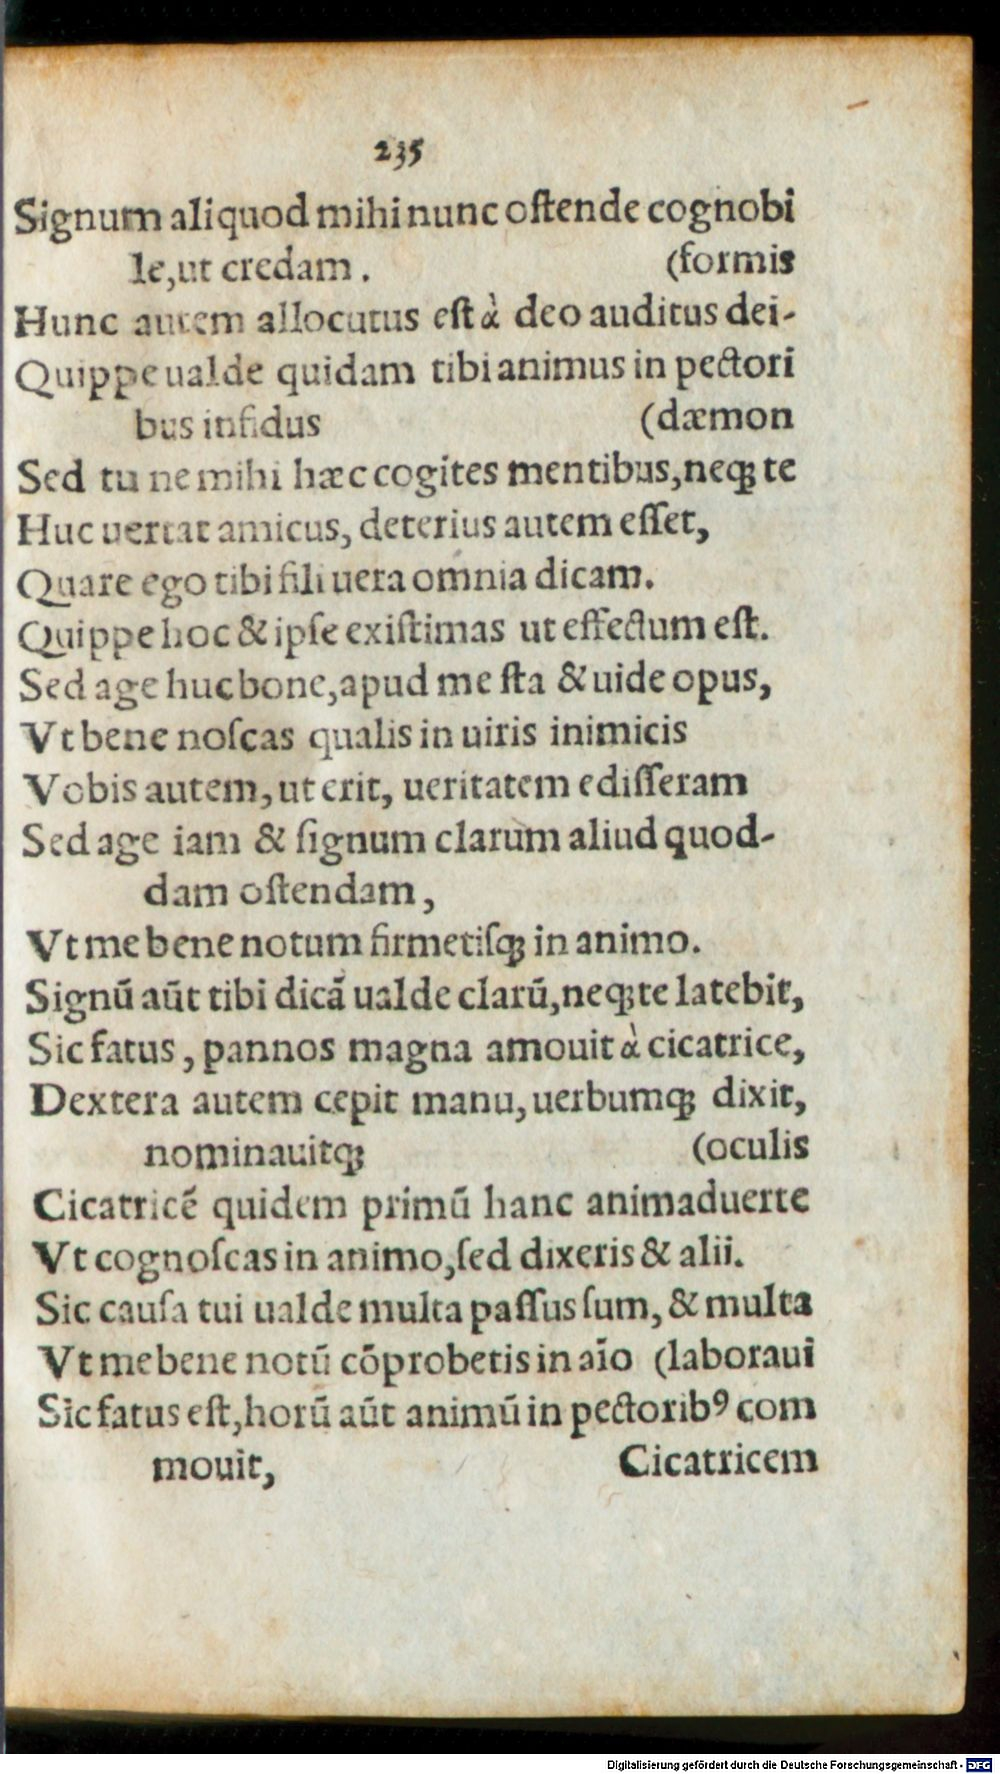 235
Signum aliquod mihi nunc oſtende cognobi
le,ut credam. (formis
Hunc autem allocutus eſt à deo auditus dei-
Quippe ualde quidam tibi animus in pectori
bus infidus (dæmon
Sed tu ne mihi hæc cogites mentibus,neqꝫ te
Huc uertat amicus, deterius autem eſſet,
Quare ego tibi fili uera omnia dicam.
Quippe hoc & ipſe exiſtimas ut effectum eſt.
Sed age huc bone,apud me ſta & uide opus,
Vt bene noſcas qualis in uiris inimicis
Vobis autem, ut erit, ueritatem ediſſeram
Sed age iam & ſignum clarum aliud quod-
dam oſtendam,
Vt me bene notum firmetiſqꝫ in animo.
Signũ aũt tibi dicã ualde clarũ,neqꝫ te latebit,
Sic fatus, pannos magna amouit à cicatrice,
Dextera autem cepit manu, uerbumqꝫ dixit,
nominauitqꝫ (oculis
Cicatricẽ quidem primũ hanc animaduerte
Vt cognoſcas in animo,ſed dixeris & alii.
Sic cauſa tui ualde multa paſſus ſum, & multa
Vt me bene notũ cõprobetis in aĩo (laboraui
Sic fatus eſt,horũ aũt animũ in pectoribꝰ com
mouit, Cicatricem
Digitalisierung gefördert durch die Deutsche Forschungsgemeinschaft - DFG